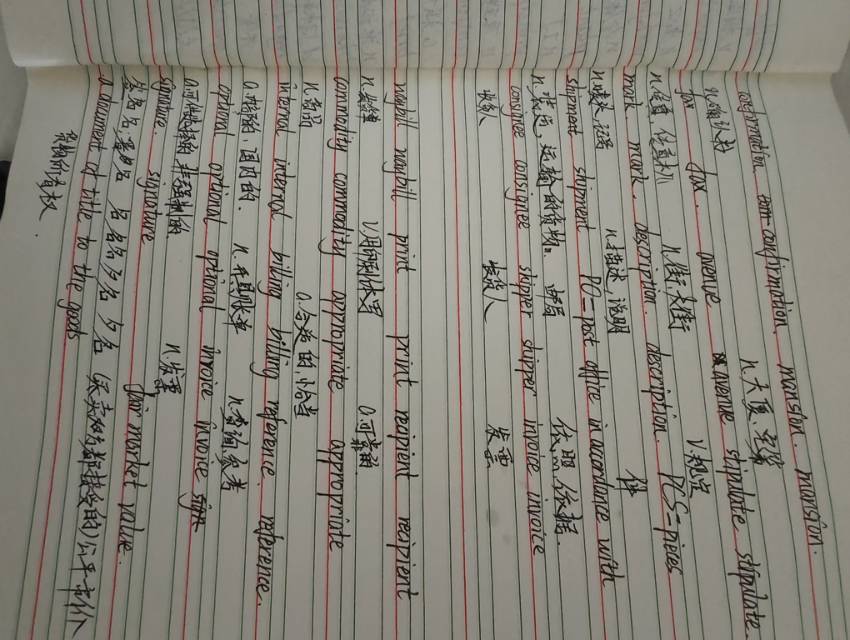 confirmation confirmation mansion mansion.
n.确认书 n.大厦.宅邸
fax fax. avenue avenue stipulate stipulate
n.传真 传真机 n.街.大街 v.规定
mark mark. description. description. PCS-pieces
n.唛头.记号 n.描述.说明 件
shipment shipment PO-post office in accordance with
n.装运,运输的货物. 邮局 依照.依据.
consignee consignee shipper shipper invoice invoice
收货人 发货人 发票
waybill waybill print print recipient recipient
n.运单 v.用印刷体写
commodity commodity appropriate appropriate
n.商品 a.合适的,恰当
internal internal billing billing reference. reference.
a.内部的,国内的. n.开具账单 n.查询参考
optional optional optional invoice invoice
a.可供选择的 非强制的. n.发票
signature signature fair market value.
签名 签名 (买卖双方都接受的)公平市价
a document of title to the goods
货物所有权.